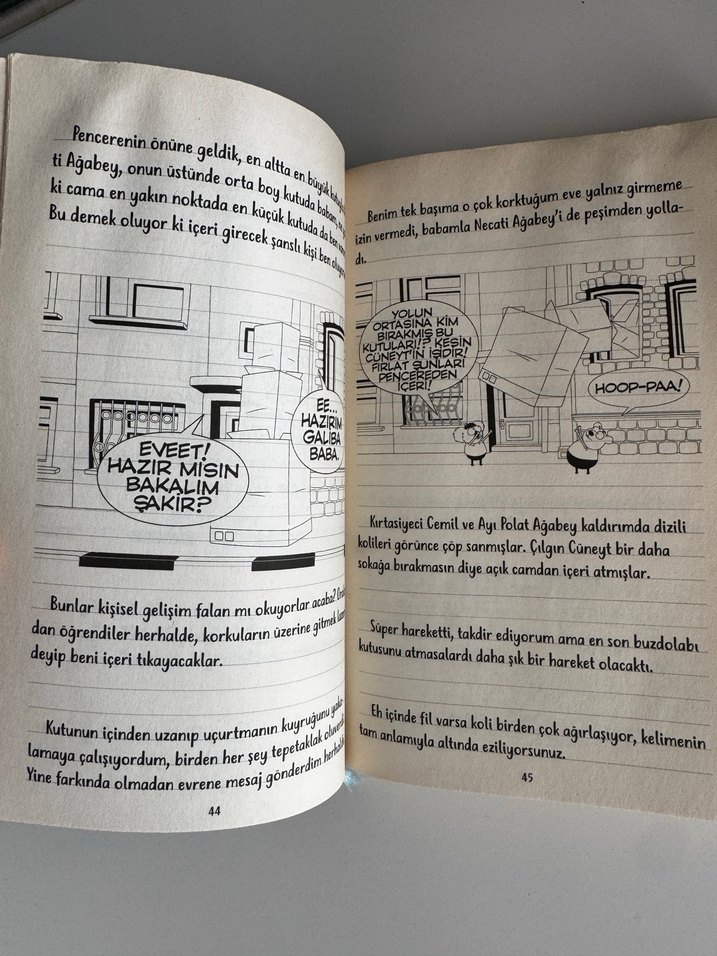 Pencerenin önüne geldik, en altta en büyük
ti Ağabey, onun üstünde orta boy kutuda babam,
ki cama en yakın noktada en küçük kutuda da ben
Bu demek oluyor ki içeri girecek şanslı kişi ben
EE...
HAZIRIM
GALİBA
BABA.
EVEET!
HAZIR MISIN
BAKALIM
ŞAKİR?
Bunlar kişisel gelişim falan mı okuyorlar acaba?
dan öğrendiler herhalde, korkuların üzerine gitmek
deyip beni içeri tıkayacaklar.
Kutunun içinden uzanıp uçurtmanın kuyruğunu yaka-
lamaya çalışıyordum, birden her şey tepetaklak
Yine farkında olmadan evrene mesaj gönderdim
44
Benim tek başıma o çok korktuğum eve yalnız girmeme
izin vermedi, babamla Necati Ağabey’i de peşimden yolla-
dı.
YOLUN
ORTASINA KİM
BIRAKMIŞ BU
KUTULARI!? KESİN
CÜNEYT'İN İŞİDİR!
FIRLAT ŞUNLARI
PENCEREDEN
İÇERİ!
HOOP-PAA!
Kırtasiyeci Cemil ve Ayı Polat Ağabey kaldırımda dizili
kolileri görünce çöp sanmışlar. Çılgın Cüneyt bir daha
sokağa bırakmasın diye açık camdan içeri atmışlar.
Süper hareketti, takdir ediyorum ama en son buzdolabı
kutusunu atmasalardı daha şık bir hareket olacaktı.
Eh içinde fil varsa koli birden çok ağırlaşıyor, kelimenin
tam anlamıyla altında eziliyorsunuz.
45